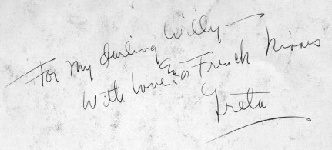 For My darling Willy —
With Love & French Kisses
Greta